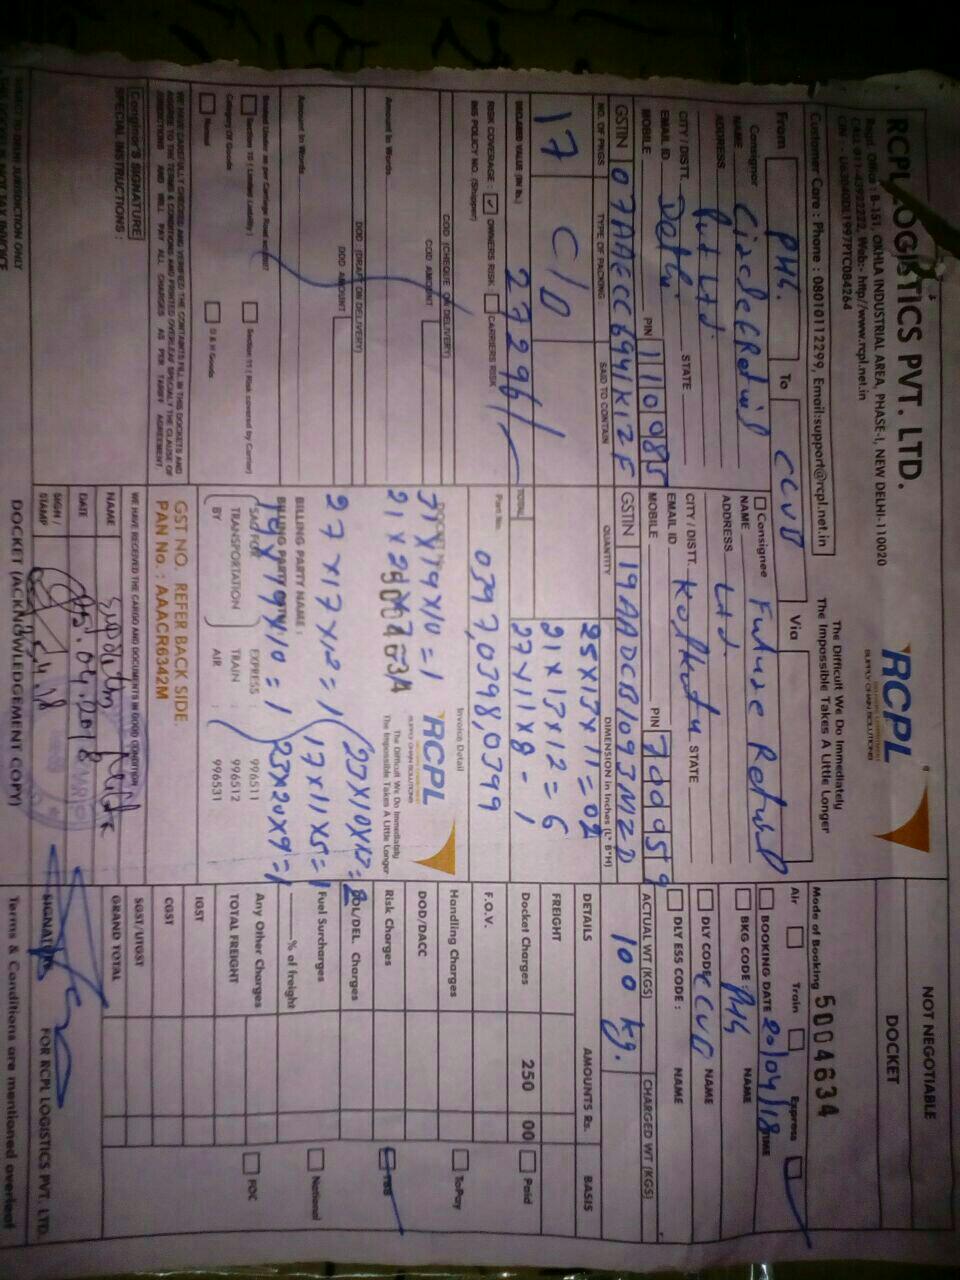 RCPL LOGISTICS PVT. LTD.
Regd. Office : B-151, OKHLA INDUSTRIAL AREA, PHASE-I, NEW DELHI-110020
CALL 011-43922222, Web:- http//www.rcpl.net.in
CIN - U63040DL1997PTC084264
Customer Care : Phone : 08010112299, Email:support@rcpl.net.in
RCPL
SUPPLY CHAIN SOLUTIONS
The Difficult We Do Immediately
The Impossible Takes A Little Longer
NOT NEGOTIABLE
DOCKET
Mode of Booking 5004634
Air Train Express
From PHG. To CCVB Via
BOOKING DATE 20/04/18 TIME
BKG CODE: PHG NAME
DLY CODE CCVB NAME
DLY ESS CODE : NAME
Consignor
NAME
ADDRESS Pvt Ltd.
CITY / DISTT. Delhi STATE
EMAIL ID PIN 110985
MOBILE
GSTIN 07AAECC6941K1ZF
Consignee
NAME Future Retail
ADDRESS Ltd.
CITY / DISTT. Kolkata STATE
EMAIL ID
MOBILE PIN
GSTIN 19AADCB1093M2D
ACTUAL WT (KGS) CHARGED WT (KGS)
100 kg.
NO. OF PKGS TYPE OF PACKING SAID TO CONTAIN QUANTITY DIMENSION in Inches (L* B*H)
17 C/D
25X13X11=02
21X13X12=6
27X11X8-1
DECLARED VALUE (IN Rs.) 27296/ TOTAL
RISK COVERAGE : OWNERS RISK CARRIERS RISK
INS POLICY NO. (Shipper)
Part No. Invoice Detail
0397,0398,0399
COD (CHEQUE ON DELIVERY)
COD AMOUNT
Amount in Words
DOD : (DRAFT ON DELIVERY)
DOD AMOUNT
Amount in Words
DOCKET
5004634
RCPL
SUPPLY CHAIN SOLUTIONS
The Difficult We Do Immediately
The Impossible Takes A Little Longer
27X17X12=1
23X10X12=2
BILLING PARTY NAME :
17X11X5=1
19X19X10=1
23X20X9=1
TRANSPORTATION BY
EXPRESS : 996511
TRAIN : 996512
AIR : 996531
DETAILS AMOUNTS Rs. BASIS
FREIGHT
Docket Charges 250 00 Paid
F.O.V.
Handling Charges ToPay
DOD/DACC
Risk Charges TBB
COL/DEL. Charges
Fuel Surcharges National
% of freight
Any Other Charges FOC
TOTAL FREIGHT
IGST
CGST
SGST/UTGST
GRAND TOTAL
Category Of Goods
Normal
D & H Goods
WE HAVE CAREFULLY CHECKED AND VERIFIED THE CONTAINTS FILL IN THIS DOCKETS AND
AGREE TO THE TERMS & CONDITIONS AND PRINTED OVERLEAF SPECIALLY THE CLAUSE OF
JURISDICTIONS AND WILL PAY ALL CHARGES AS PER TARIFF AGREEMENT.
Consignor's SIGNATURE
SPECIAL INSTRUCTIONS :
GST NO. REFER BACK SIDE
PAN No. : AAACR6342M
WE HAVE RECEIVED THE CARGO AND DOCUMENTS IN GOOD CONDITION
NAME
DATE 25.04.2018
SIGN / STAMP
SIGNATURE
FOR RCPL LOGISTICS PVT. LTD.
DOCKET (ACKNOWLEDGEMENT COPY)
Terms & Conditions are mentioned overleaf